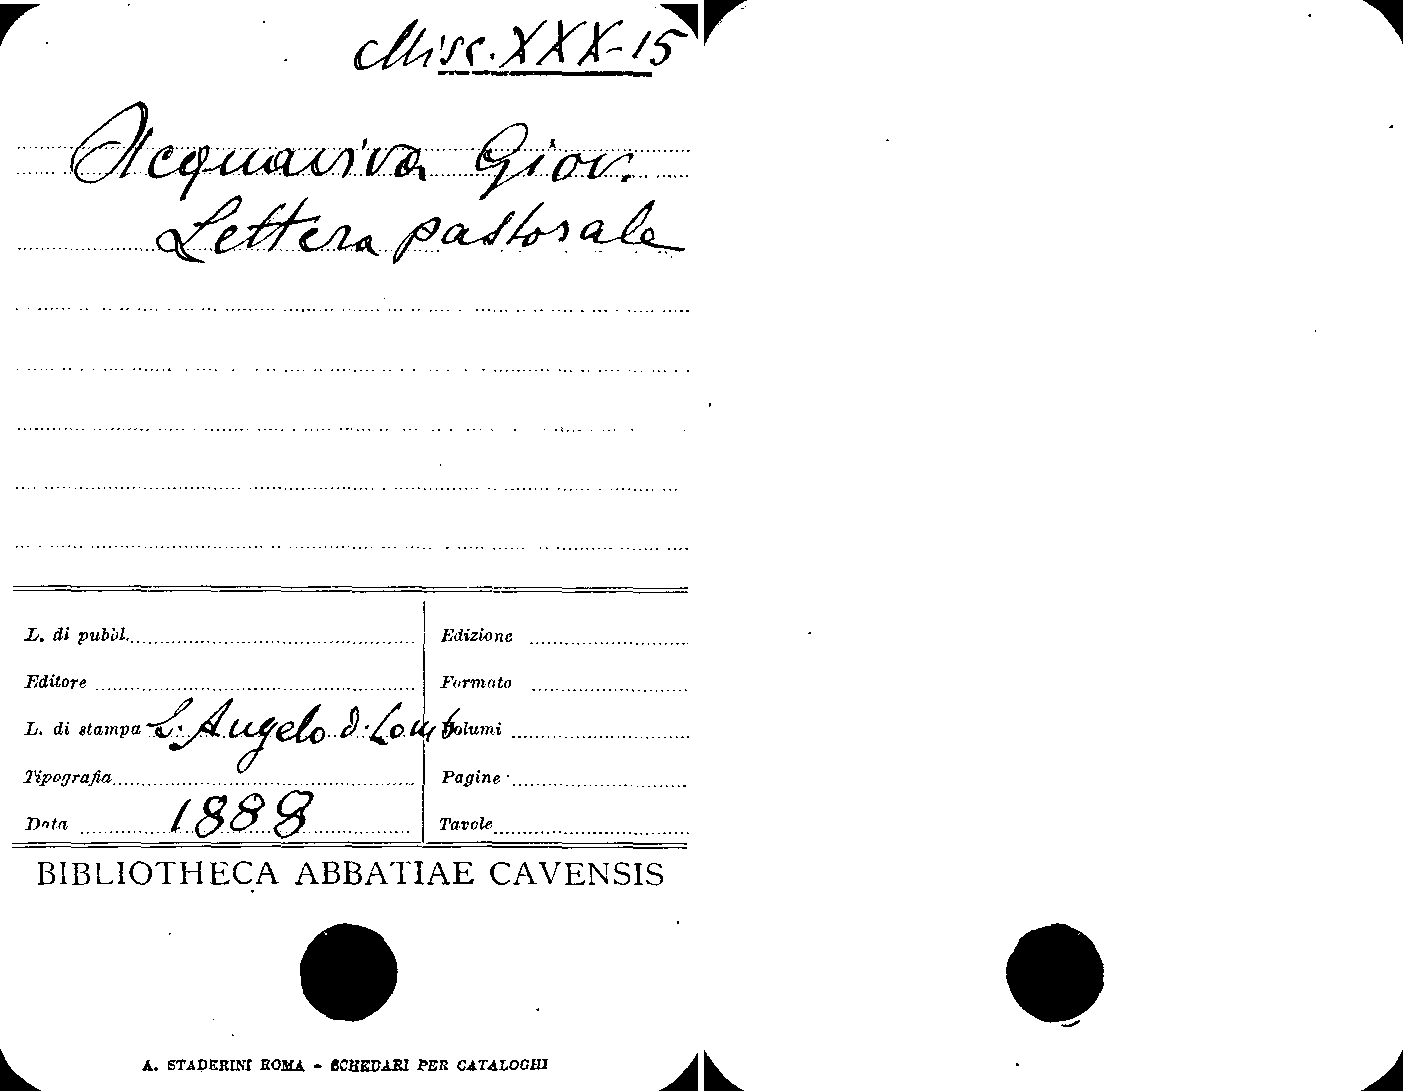 Misc. XXX-15
Acquaviva Giov.
Lettera pastorale
L. di pubbl.
Edizione
Editore
Formato
L. di stampa S. Angelo d. Lomb
Volumi
Tipografia
Pagine
Data 1888
Tavole
BIBLIOTHECA ABBATIAE CAVENSIS
A. STADERINI ROMA - SCHEDARI PER CATALOGHI